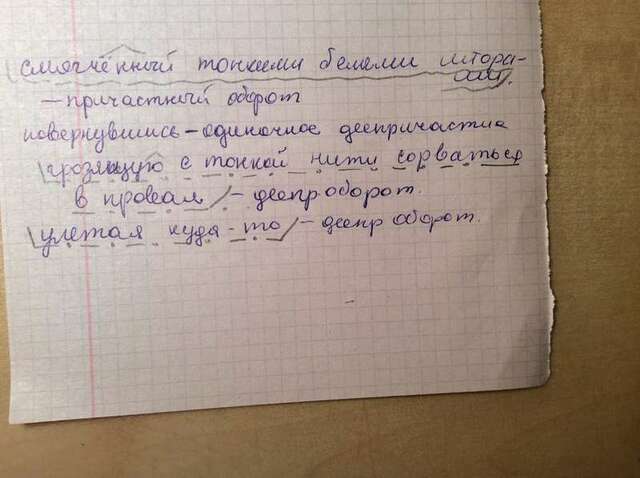 смягчённый тонкими белыми штора-
ми.
— причастный оборот
повернувшись – одиночное деепричастие
грозящую с тонкой нити сорваться
в провал – деепр оборот.
улетая куда-то – деепр оборот.